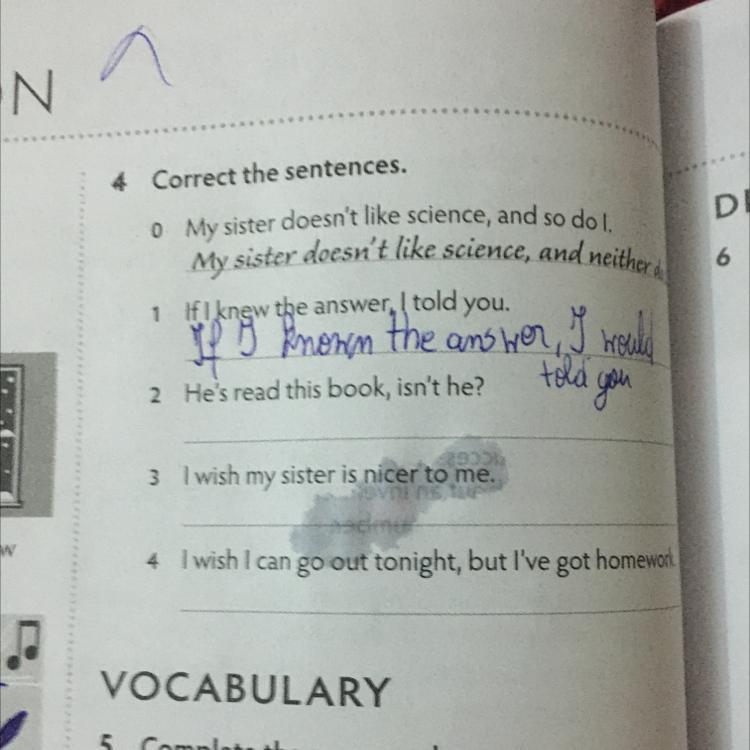 ON
4 Correct the sentences.
0 My sister doesn't like science, and so do I.
My sister doesn't like science, and neither
1 If I knew the answer, I told you.
If I known the answer, I would
told you
2 He's read this book, isn't he?
3 I wish my sister is nicer to me.
4 I wish I can go out tonight, but I've got homework.
VOCABULARY
5 Complete the
DI
6
W